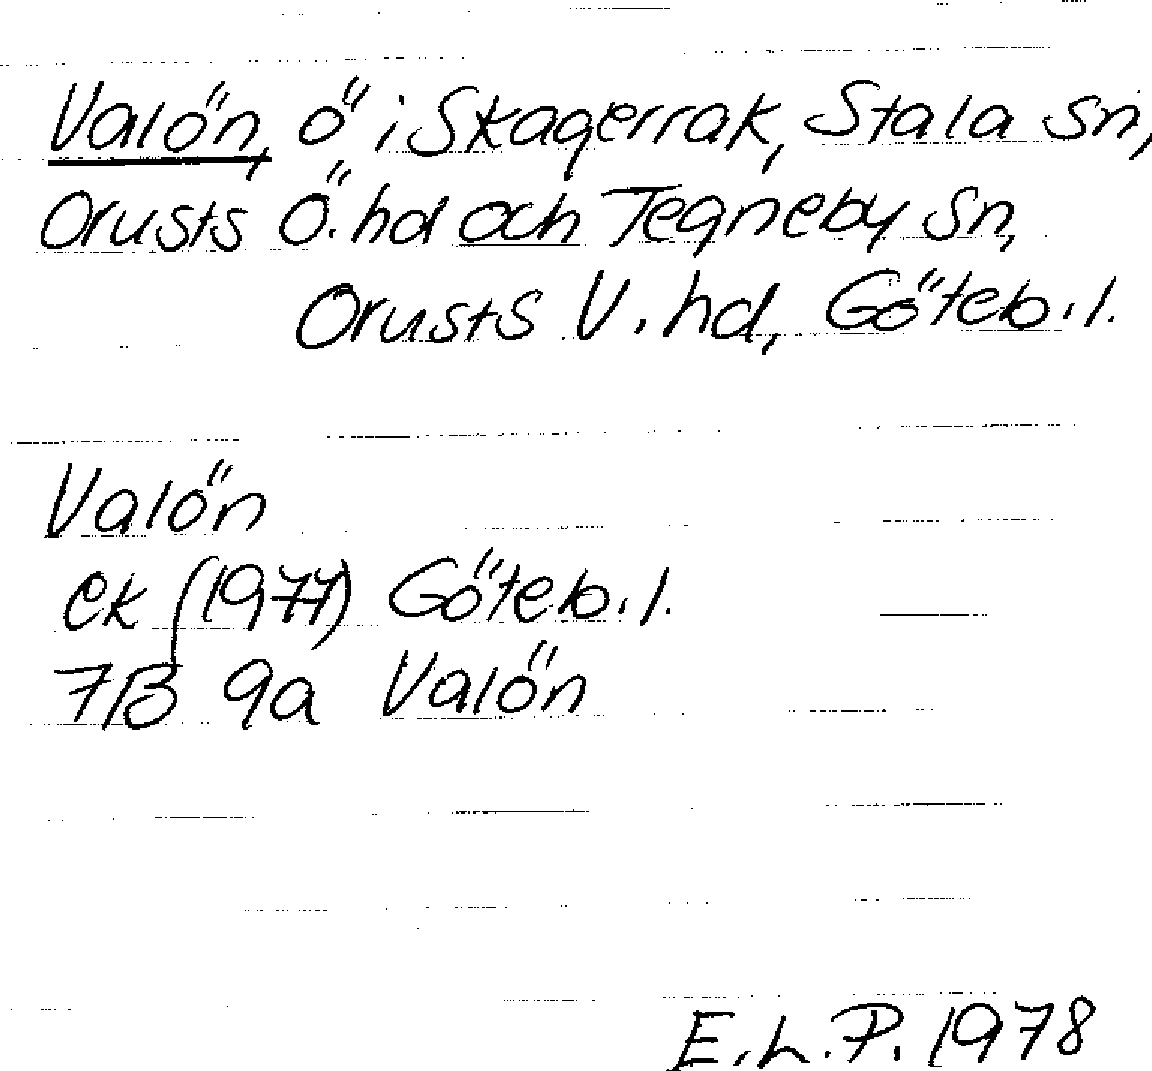 Valön, ö i Skagerrak, Stala sn,
Orusts Ö. hd och Tegneby sn,
Orusts V. hd, Göteb. l.
Valön
ek (1977) Göteb. l.
7B 9a Valön
E.L.P. 1978